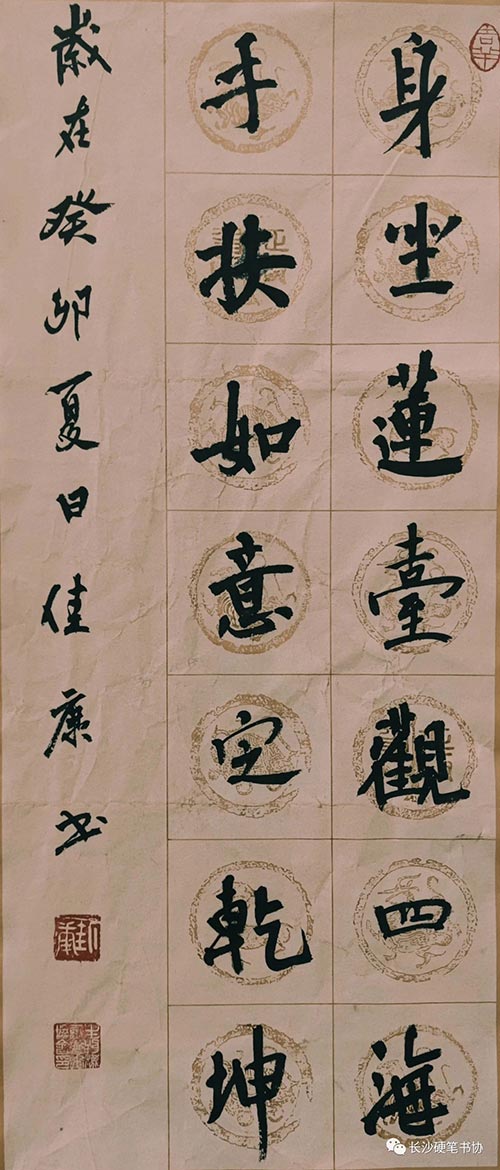 身坐蓮臺觀四海
手扶如意定乾坤
歲在癸卯夏日佳康书
长沙硬笔书协